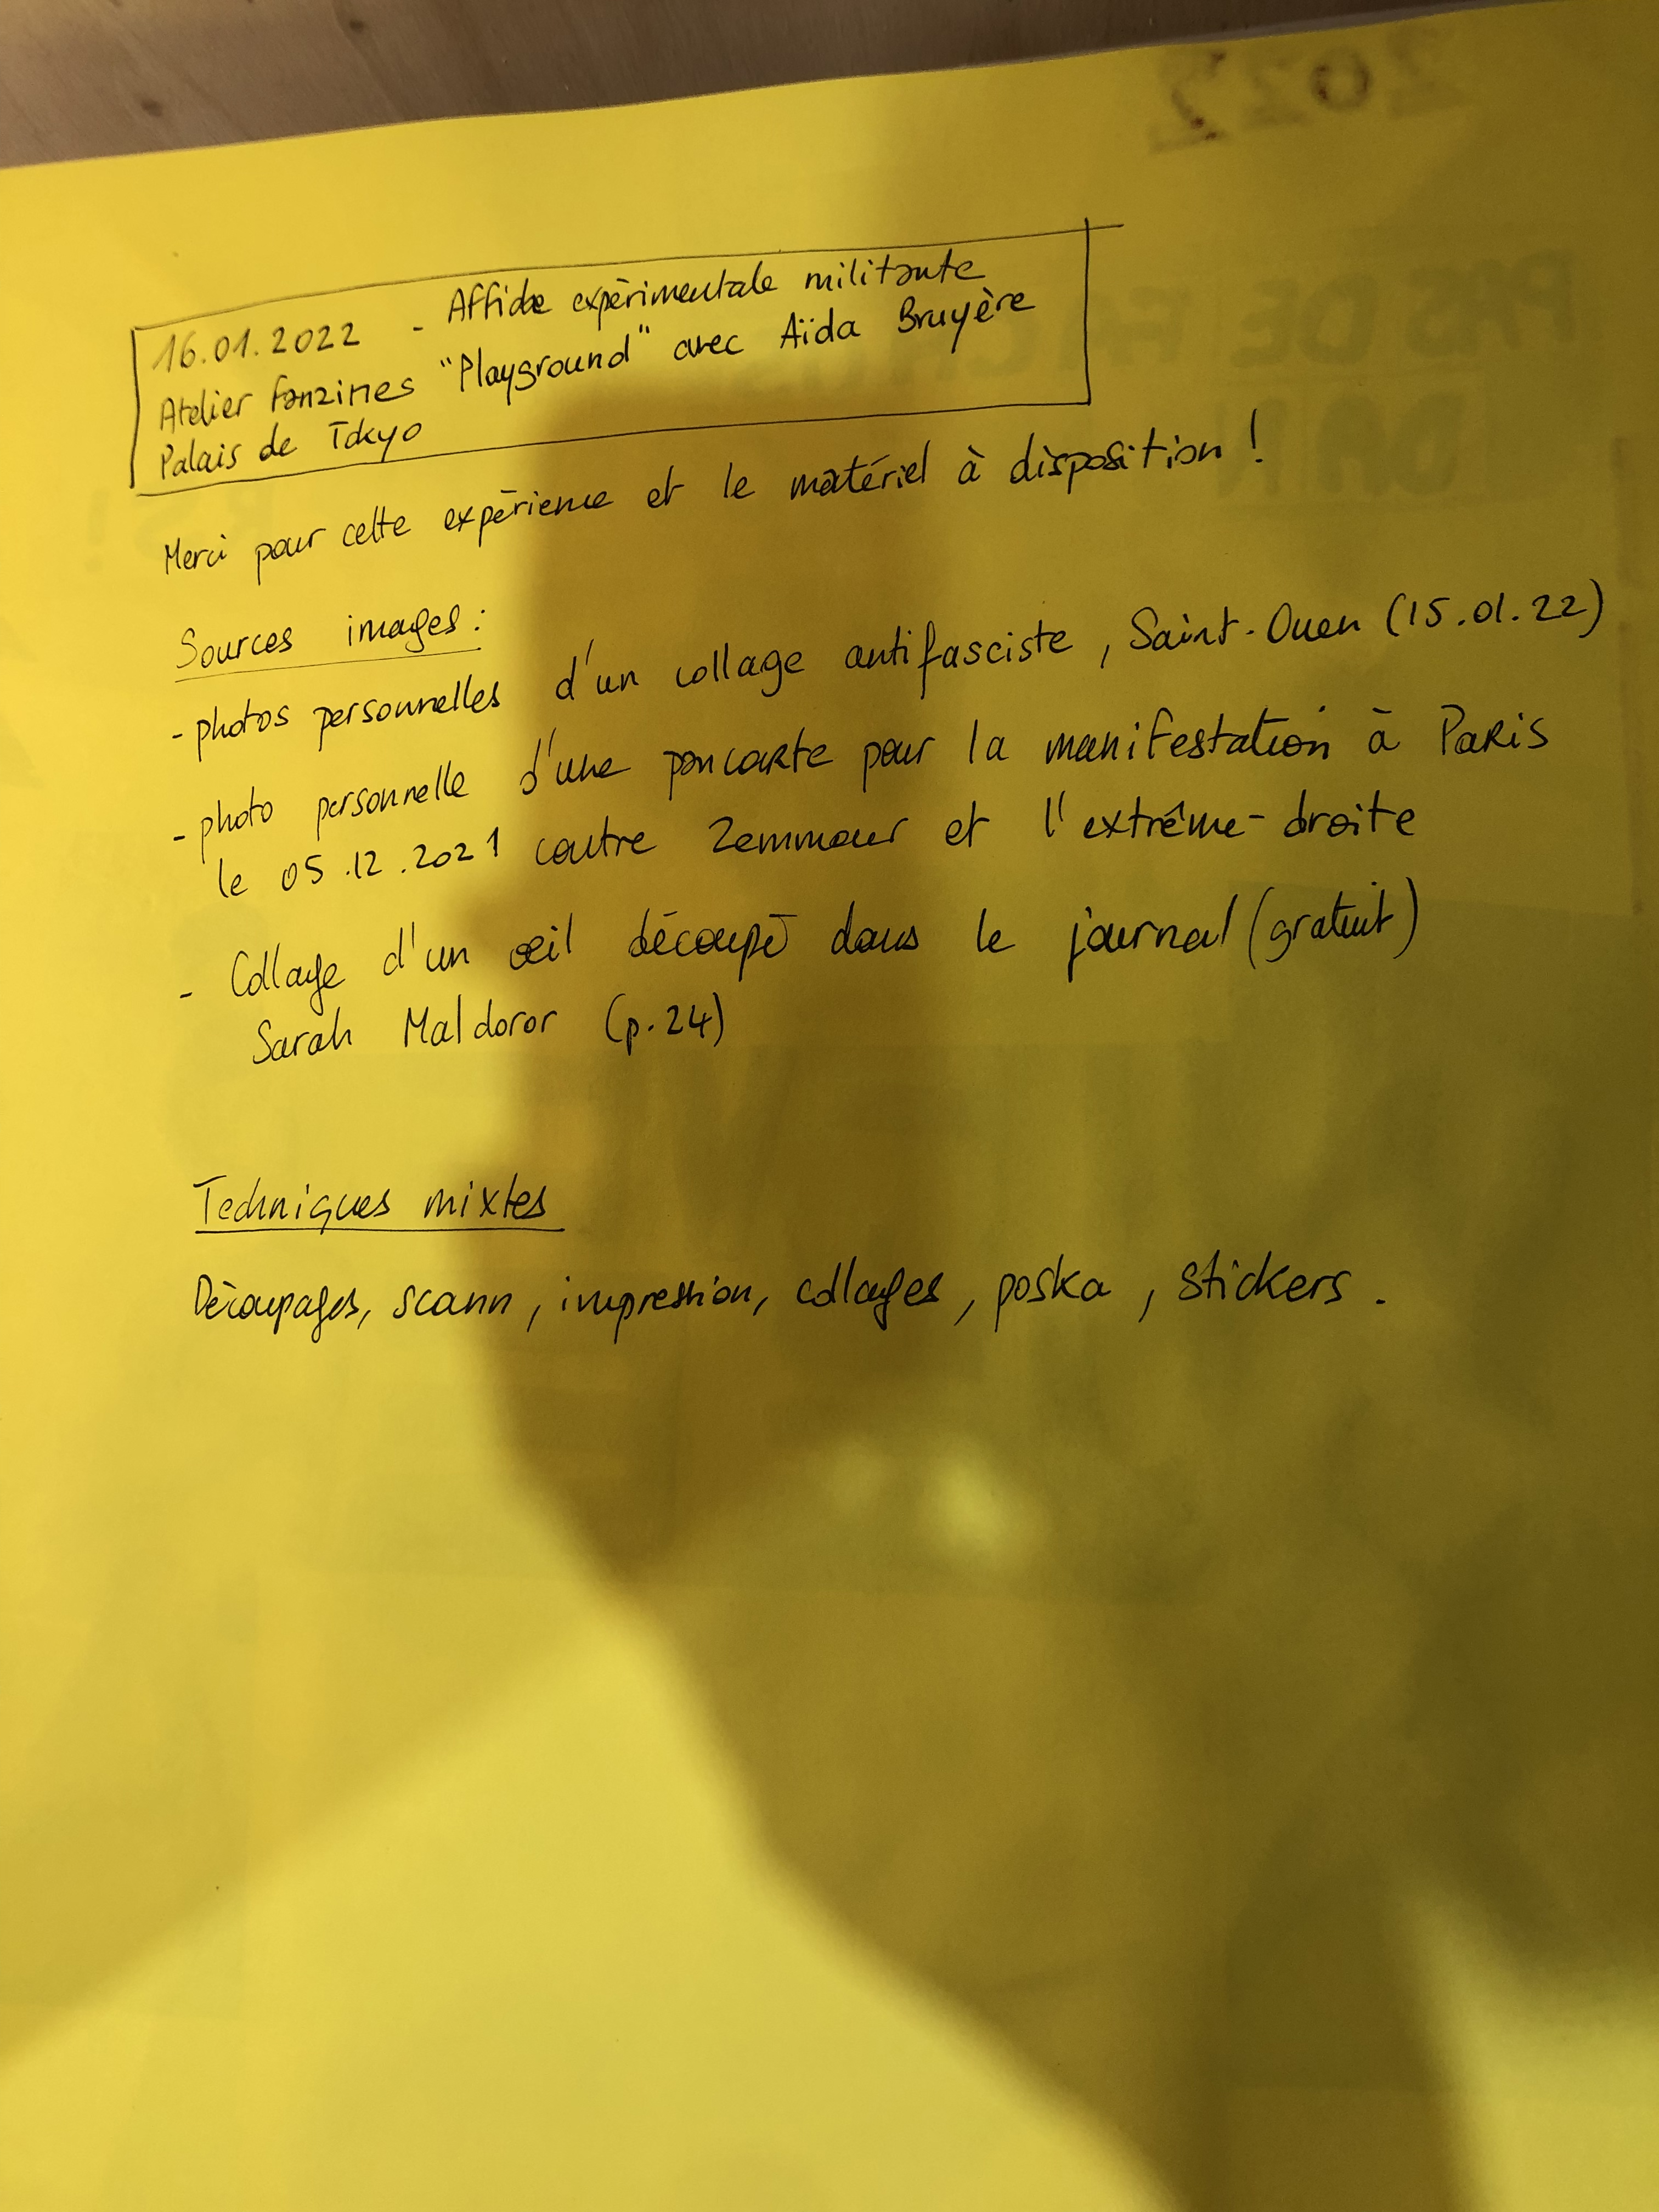 2022
16.01.2022 - Affiche expérimentale militante
Atelier fanzines "Playground" avec Aïda Bruyère
Palais de Tokyo
Merci pour cette expérience et le matériel à disposition !
Sources images :
- photos personnelles d'un collage antifasciste, Saint-Ouen (15.01.22)
- photo personnelle d'une pancarte pour la manifestation à Paris
le 05.12.2021 contre Zemmour et l'extrême-droite
- Collage d'un œil découpé dans le journal (gratuit)
Sarah Maldoror (p.24)
Techniques mixtes
Découpages, scann, impression, collages, poska, stickers.